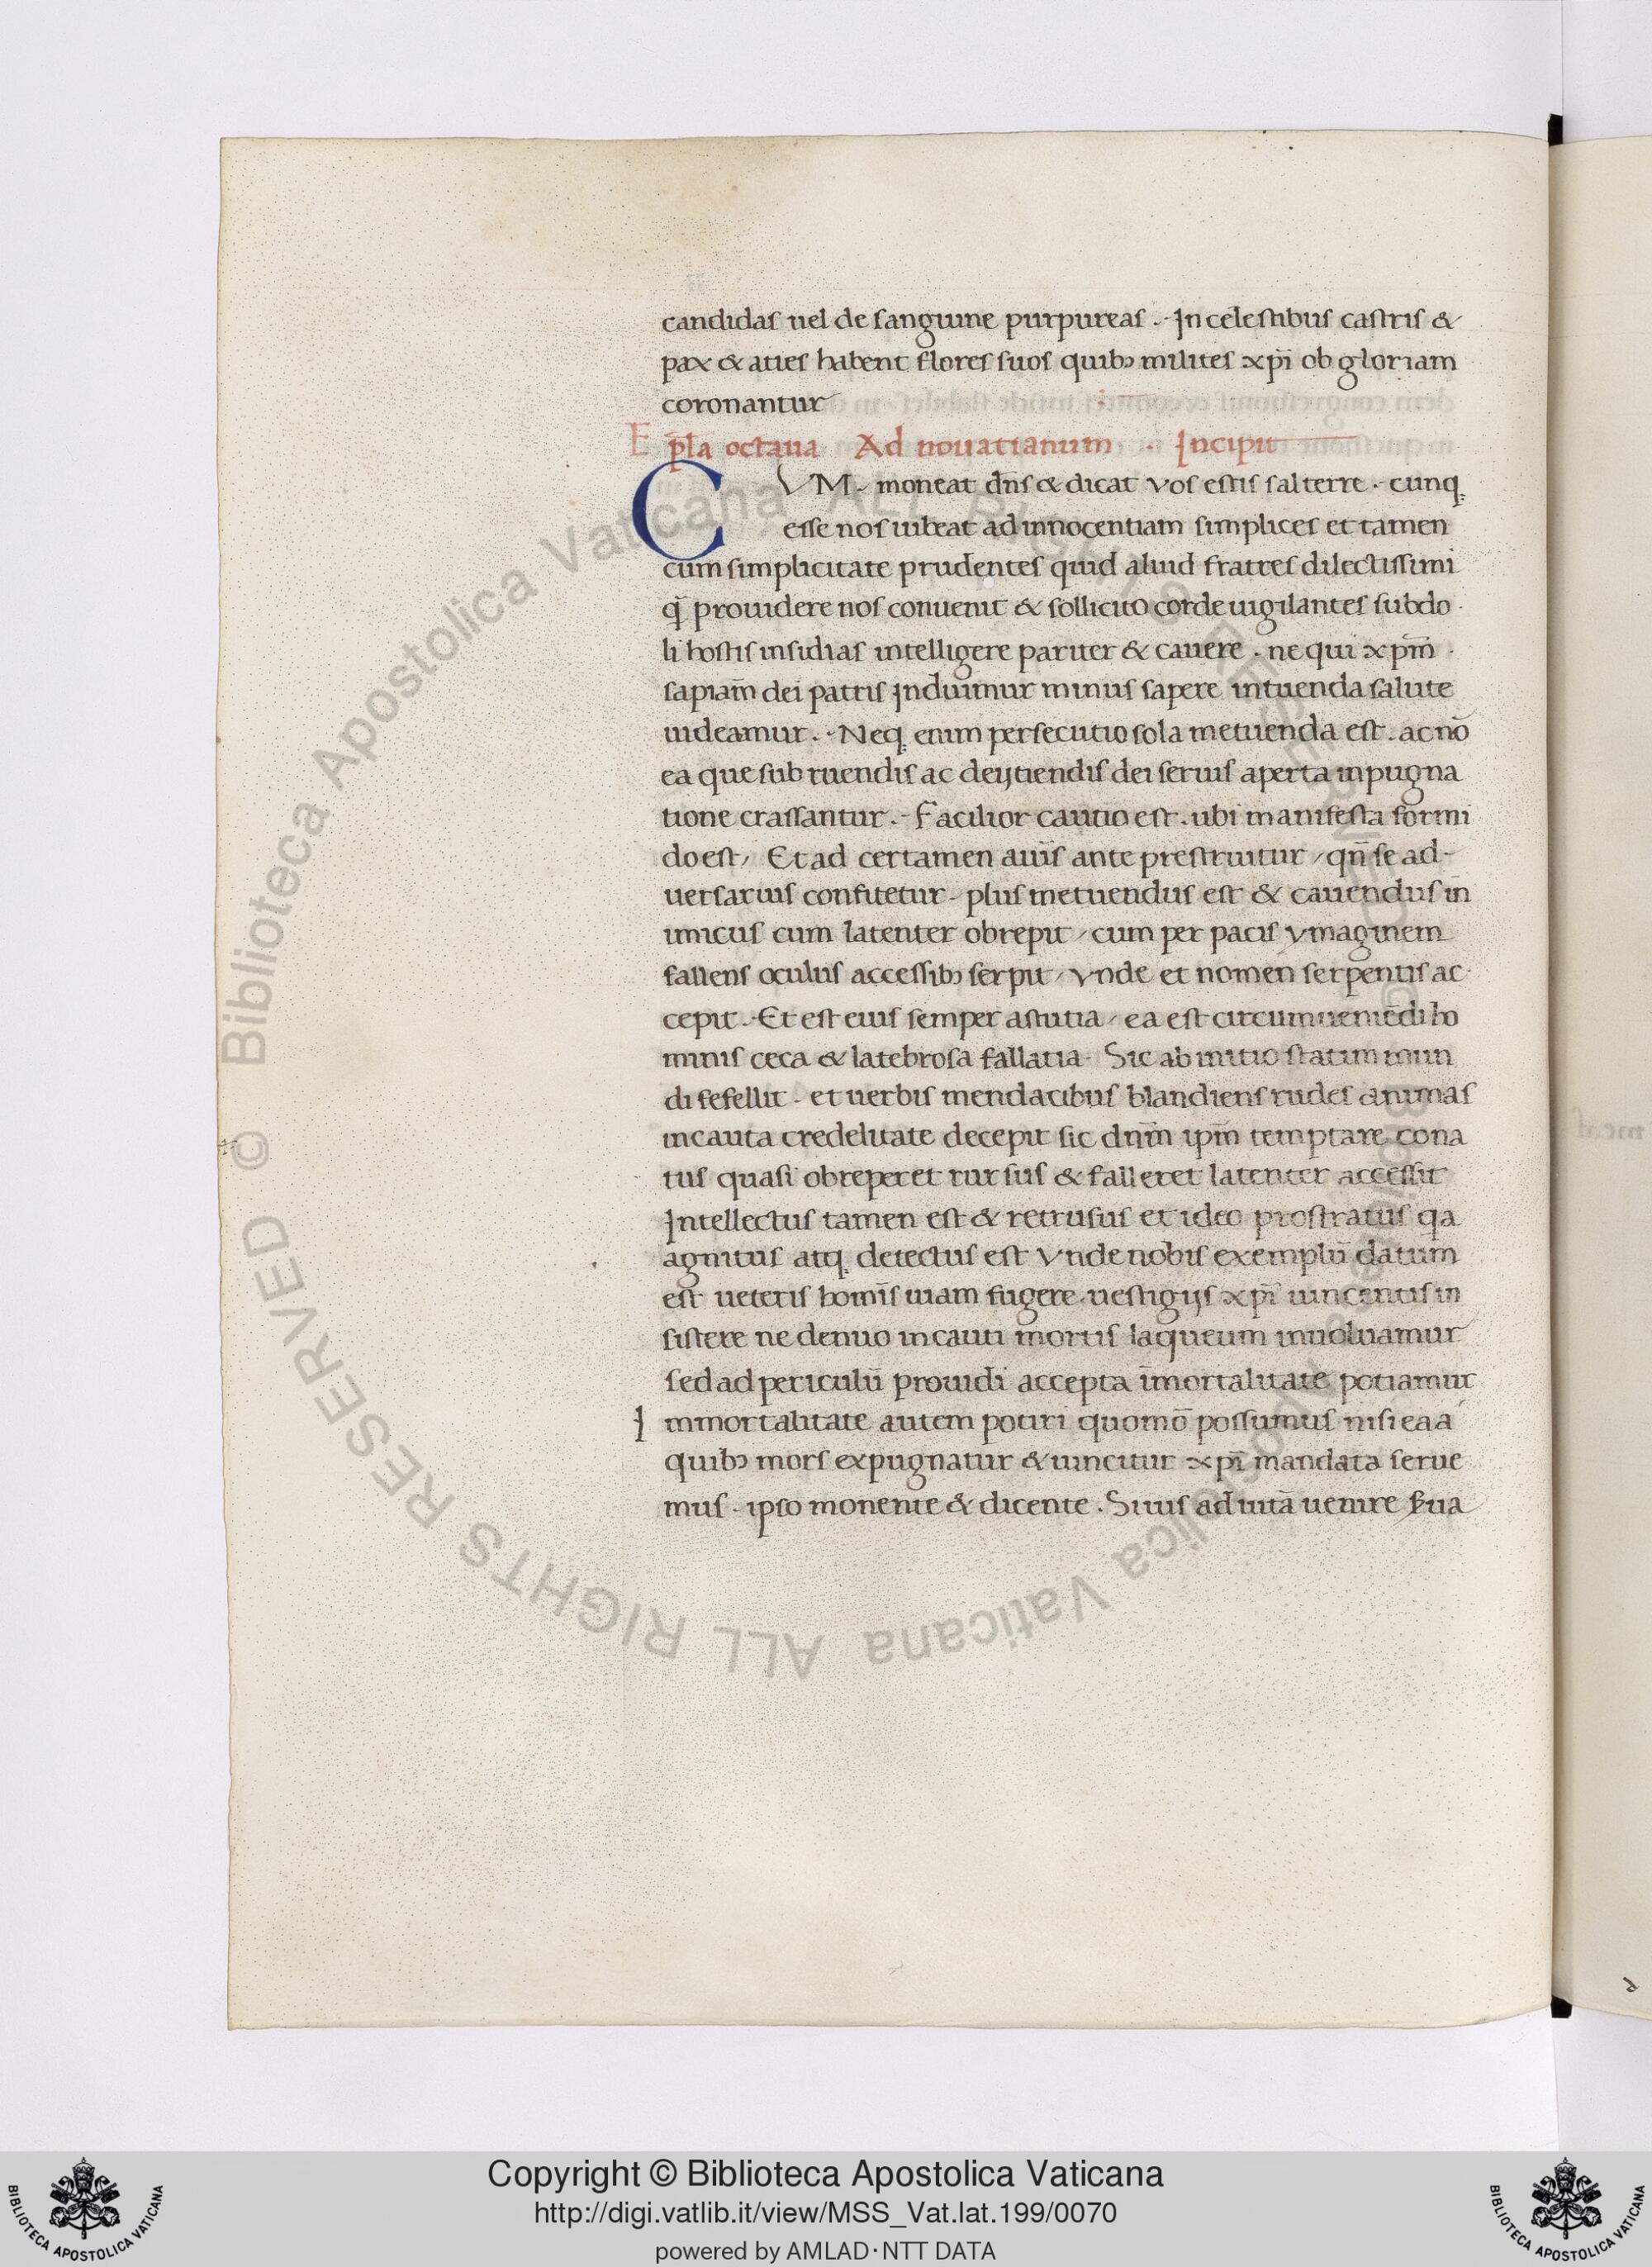 candidas uel de sanguine purpureas. In celestibus castris &
pax & aties habent flores suos quibꝫ milites xp̄i ob gloriam
coronantur
Ep̄la octaua Ad nouatianum . Incipit
CVM moneat dn̄s & dicat vos estis sal terre . cunqꝫ
esse nos iubeat ad innocentiam simplices et tamen
cum simplicitate prudentes quid aliud fratres dilectissimi
q̄ prouidere nos conuenit & sollicito corde uigilantes subdo
li hostis insidias intelligere pariter & cauere . ne qui xp̄m
sapiam̄ dei patris induimur minus sapere in tuenda salute
uideamur . Neqꝫ enim persecutio sola metuenda est . ac nō
ea que sub ruendis ac deijtiendis dei seruis aperta inpugna
tione crassantur . Facilior cautio est . ubi manifesta formi
do est, Et ad certamen auīs ante prestruitur, qn̄ se ad-
uersarius confitetur . plus metuendus est & cauendus in̄
imicus cum latenter obrepit, cum per pacis ymaginem
fallens ocultis accessibꝫ serpit, vnde et nomen serpentis ac
cepit . Et est eius semper astutia, ea est circumueniēdi ho
minis ceca & latebrosa fallatia . Sic ab initio statim mun
di fefellit . et uerbis mendacibus blandiens rudes animas
incauta credelitate decepit sic dnm̄ ipm̄ temptare cona
tus quasi obreperet rursus & falleret latenter accessit
Intellectus tamen est & retrusus et ideo prostratus q̄a
agnitus atqꝫ detectus est Vnde nobis exemplū datum
est ueteris homīs uiam fugere . uestigijs xp̄i uincentis in
sistere ne denuo incauti mortis laqueum inuoluamur
sed ad periculū prouidi accepta īmortalitate potiamur
Immortalitate autem potiri quomō possumus nisi ea a
quibꝫ mors expugnatur & uincitur xp̄i mandata serue
mus . ipso monente & dicente . Si uis ad uitā uenire ẜua
Copyright © Biblioteca Apostolica Vaticana
http://digi.vatlib.it/view/MSS_Vat.lat.199/0070
powered by AMLAD·NTT DATA
BIBLIOTECA APOSTOLICA VATICANA
BIBLIOTECA APOSTOLICA VATICANA
© Biblioteca Apostolica Vaticana ALL RIGHTS RESERVED © Biblioteca Apostolica Vaticana ALL RIGHTS RESERVED